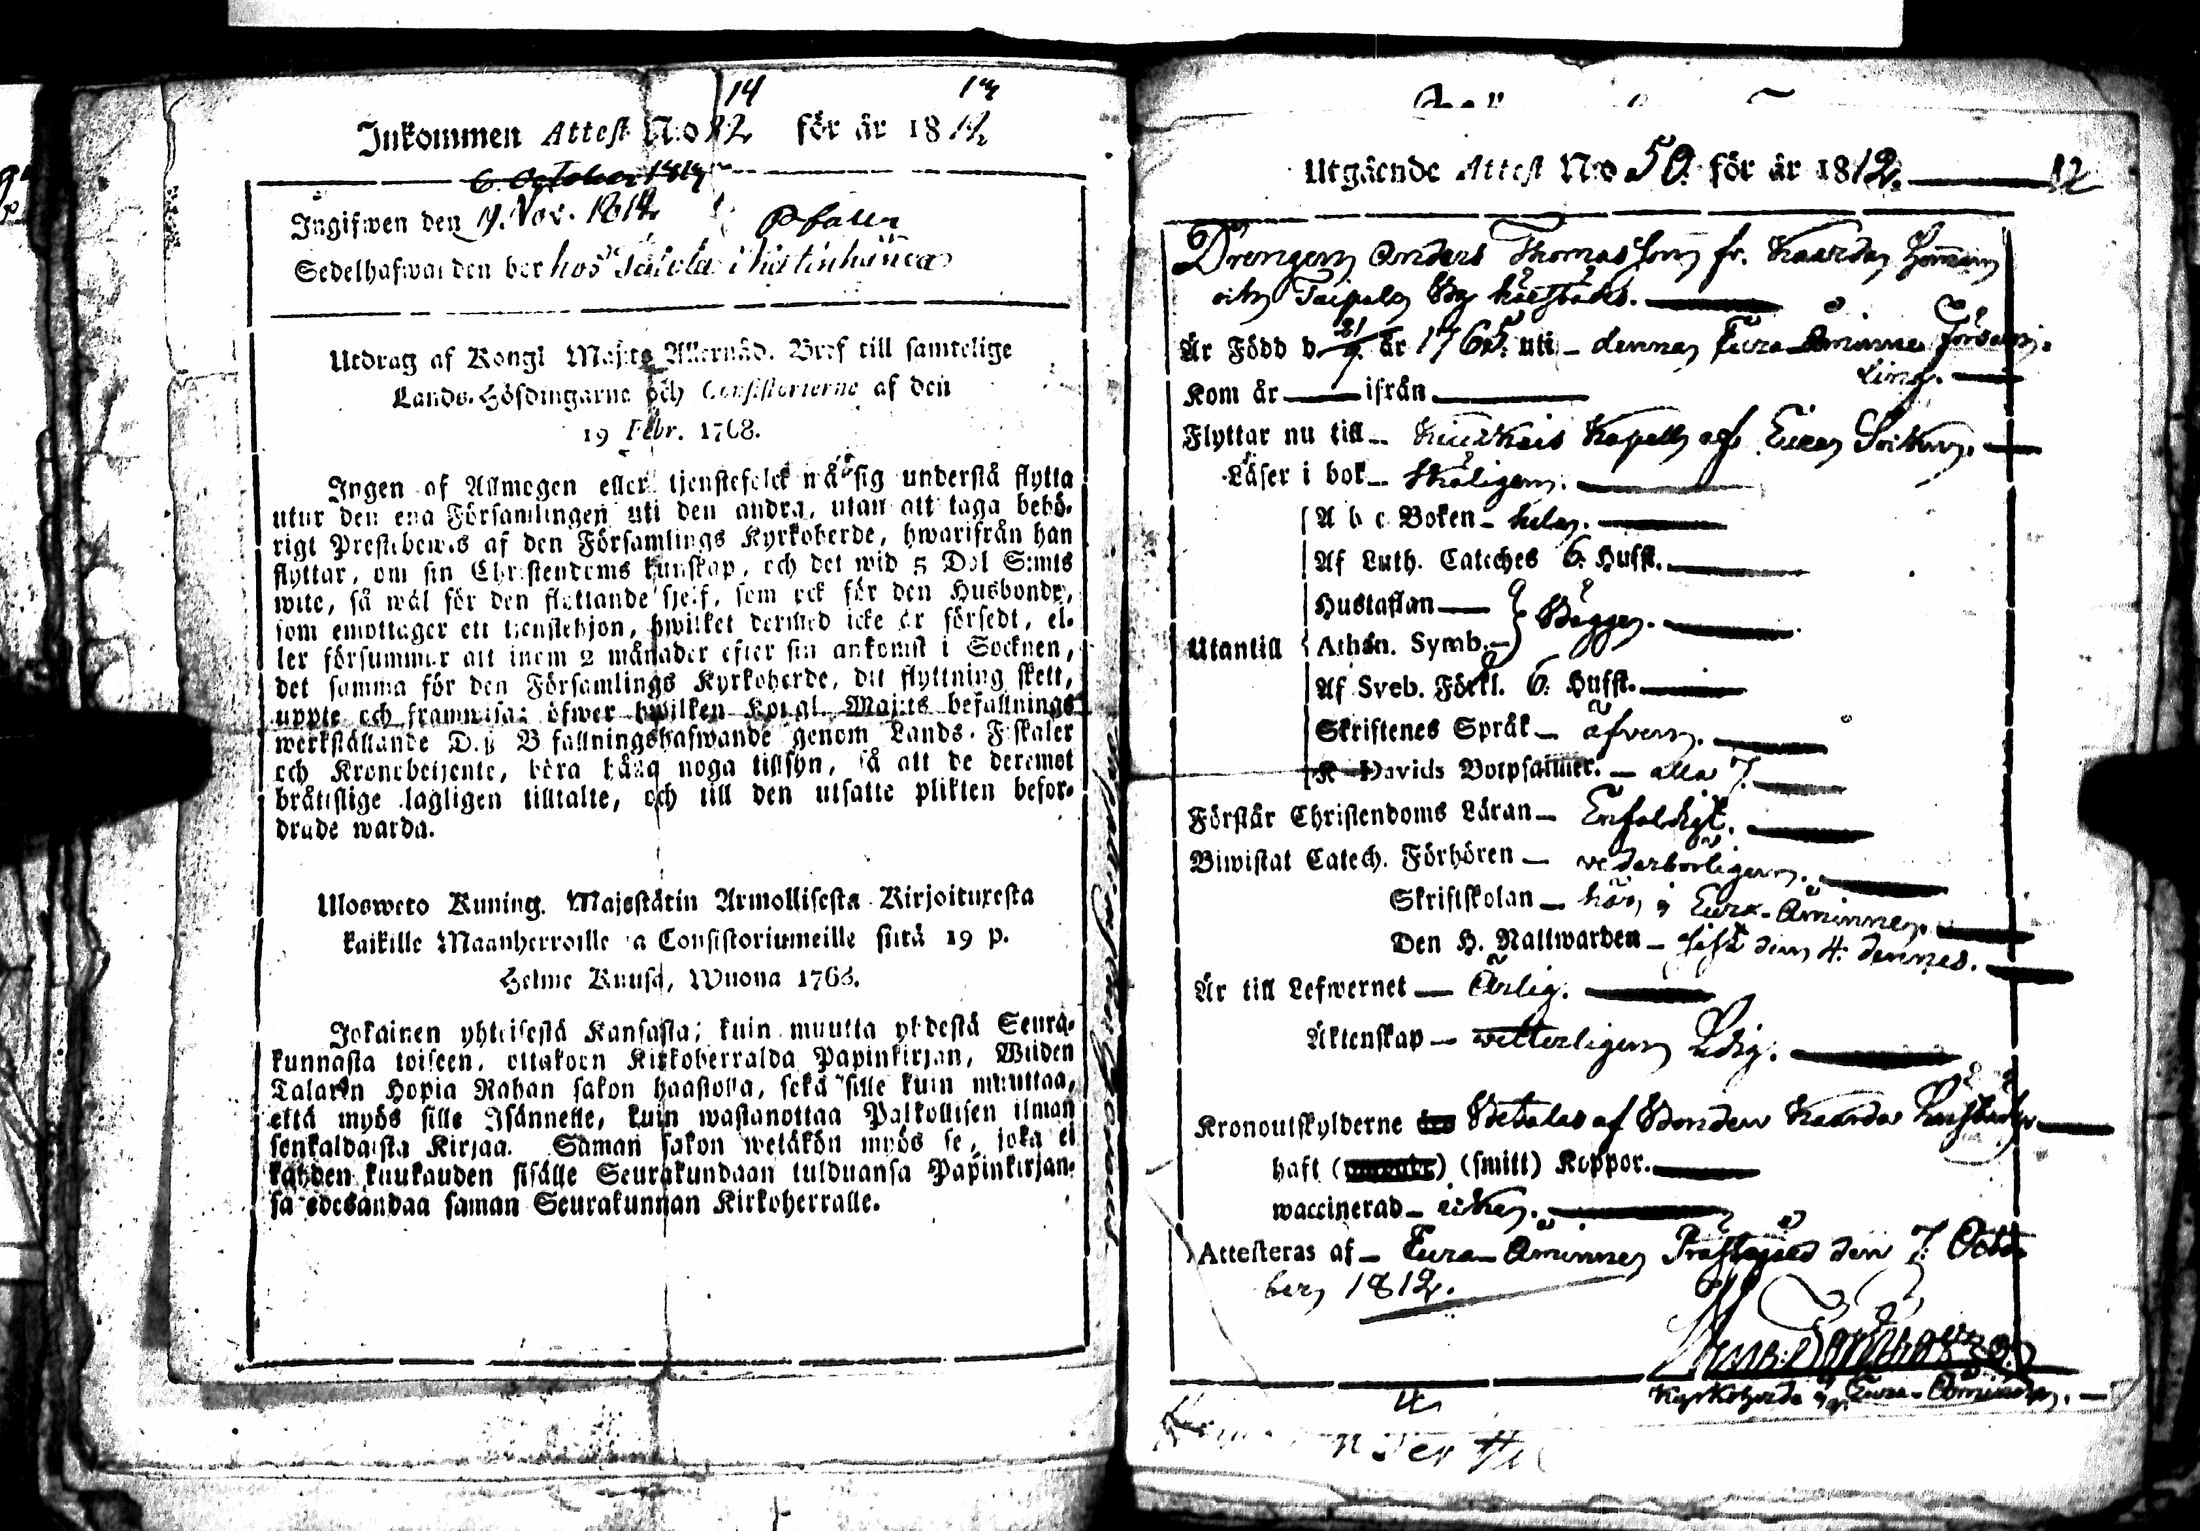 14 12
Inkommen Attest N:o 12 för år 1812
6 October 1812
Ingifwen den 9. Nov. 1812
Sedelhafwanden bor hos i
Utdrag af Kongl. Maj:ts Allernåd. Bref till samtelige
Lands-Höfdingarne och Consistorierne af den
19 Febr. 1768.
Ingen af Allmogen eller tjenstefolck må sig understå flytta
utur den ena Församlingen uti den andra, utan att taga behö-
rigt Prestabewis af den Församlings Kyrkoherde, hwarifrån han
flyttar, om sin Christendoms kunskap, och det wid 5 Dal. S:mts
wite, så wäl för den flyttande sjelf, som ock för den Husbonde,
som emottager ett tjenstehjon, hwilket dermed icke är försedt, el-
ler försummar att inom 2 månader efter sin ankomst i Socknen,
det samma för den Församlings Kyrkoherde, dit flyttning skett,
uppte och framwisa; öfwer hwilken Kongl. Maj:ts befallnings
werkställande Deß Befallningshafwande genom Lands-Fiskaler
och Kronobetjente, böra hålla noga tillsyn, så att de deremot
bråttslige lagligen tilltalte, och till den utsatte plikten befor-
drade warda.
Ulosweto Kuning. Majestätin Armollisesta Kirjoituxesta
kaikille Maanherroille ja Consistoriumeille siitä 19 p.
Helme Kuusa, Wuona 1768.
Jokainen yhteisestä Kansasta, kuin muutta yhdestä Seura-
kunnasta toiseen, ottakoon Kirkoherralda Papinkirjan, Wiiden
Talarin Hopia Rahan sakon haastolla, sekä sille kuin muuttaa,
että myös sille Isännelle, kuin wastanottaa Palkollisen ilman
senkaldaista Kirjaa. Saman sakon wetäkön myös se, joka ei
kahden kuukauden sisälle Seurakundaan tulduansa Papinkirjan-
sa edesandaa saman Seurakunnan Kirkoherralle.
Utgående Attest N:o 50. för år 1812. 12
Drengen Anders Thomasson fr. Kaarda Hemman
och Taipale By härstädes.
Är Född d. 21/9. år 1765. uti denna Eura-Åminne Försam-
ling.
Kom år ifrån
Flyttar nu till Kiukais Kapell af Eura Sockn.
Läser i bok skäligen.
A b c Boken hela.
Af Luth. Cateches 6. Hufst.
Hustaflan
Athan. Symb. Bägge.
Utantill
Af Sveb. Förkl. 6. Hufst.
Skriftenes Språk äfven.
K Davids Botpsalmer. alla 7.
Förstår Christendoms Läran Enfaldigt.
Biwistat Catech. Förhören vederbörligen.
Skriftskolan här i Eura-Åminne.
Den H. Nattwarden sist den 4. dennes.
Är till Lefwernet Ärlig.
Äktenskap vetterligen Ledig.
Kronoutskylderne Betalas af Bonden Kaarda
haft (smitt) Koppor.
waccinerad icke.
Attesteras af Eura-Åminne Prästgård den 7. Octo-
ber 1812.
Kyrkoherde i Eura-Åminne.